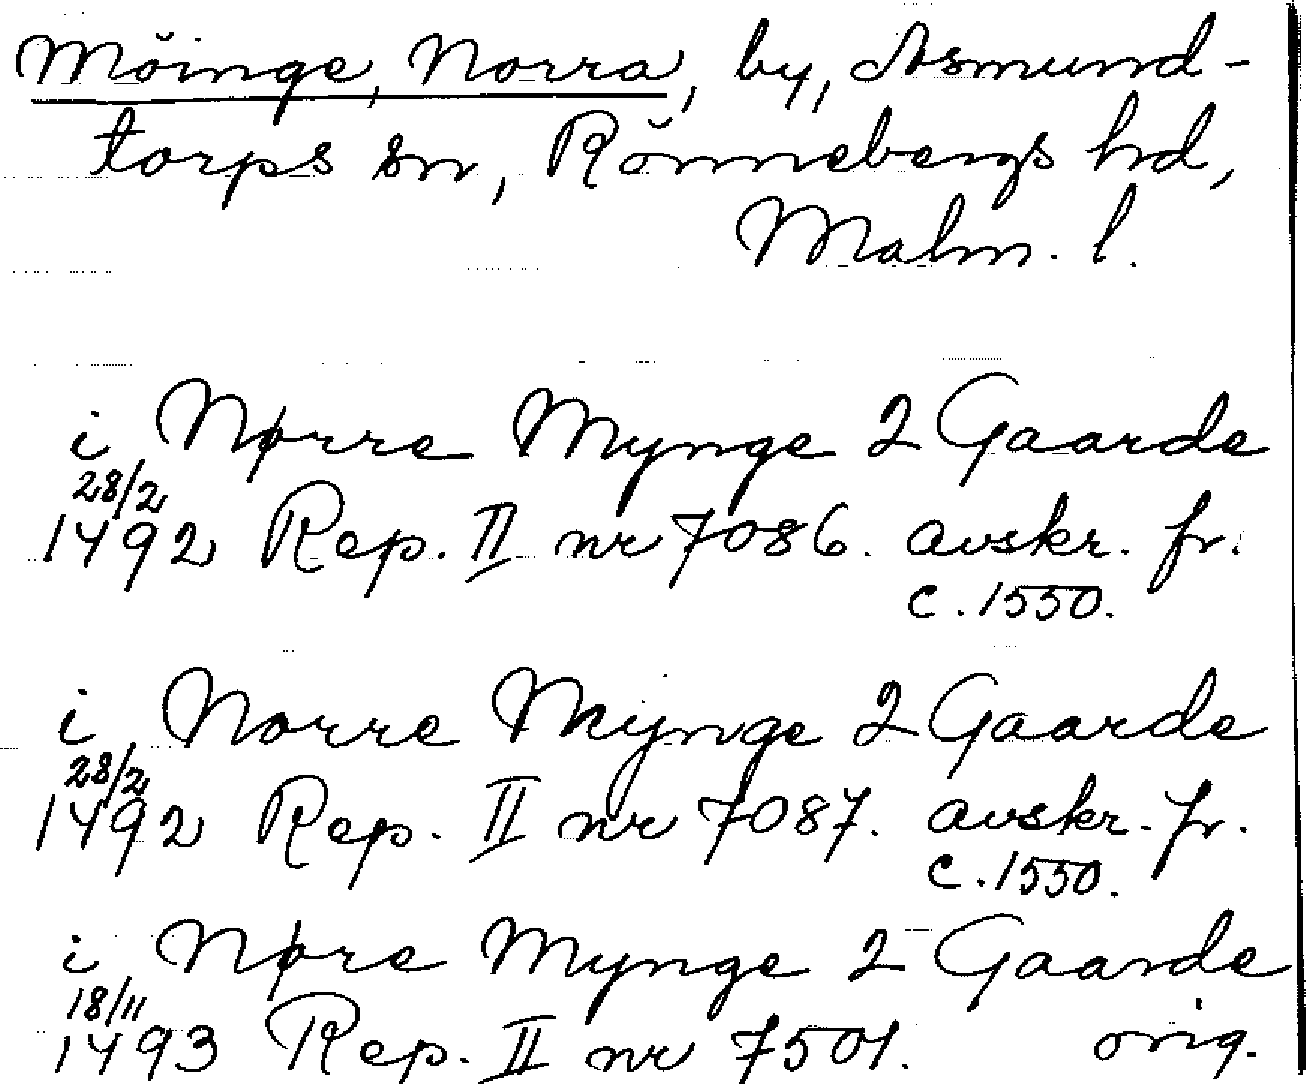 Möinge, Norra, by, Asmund-
torps sn, Rönnebergs hd,
Malm. l.
i Nørre Mynge 2 Gaarde
28/2
1492 Rep. II nr 7086. avskr. fr.
c. 1550.
i Norre Mynge 2 Gaarde
28/2
1492 Rep. II nr 7087. avskr. fr.
c. 1550.
i Nøre Mynge 2 Gaarde
18/11
1493 Rep. II nr 7501. orig.